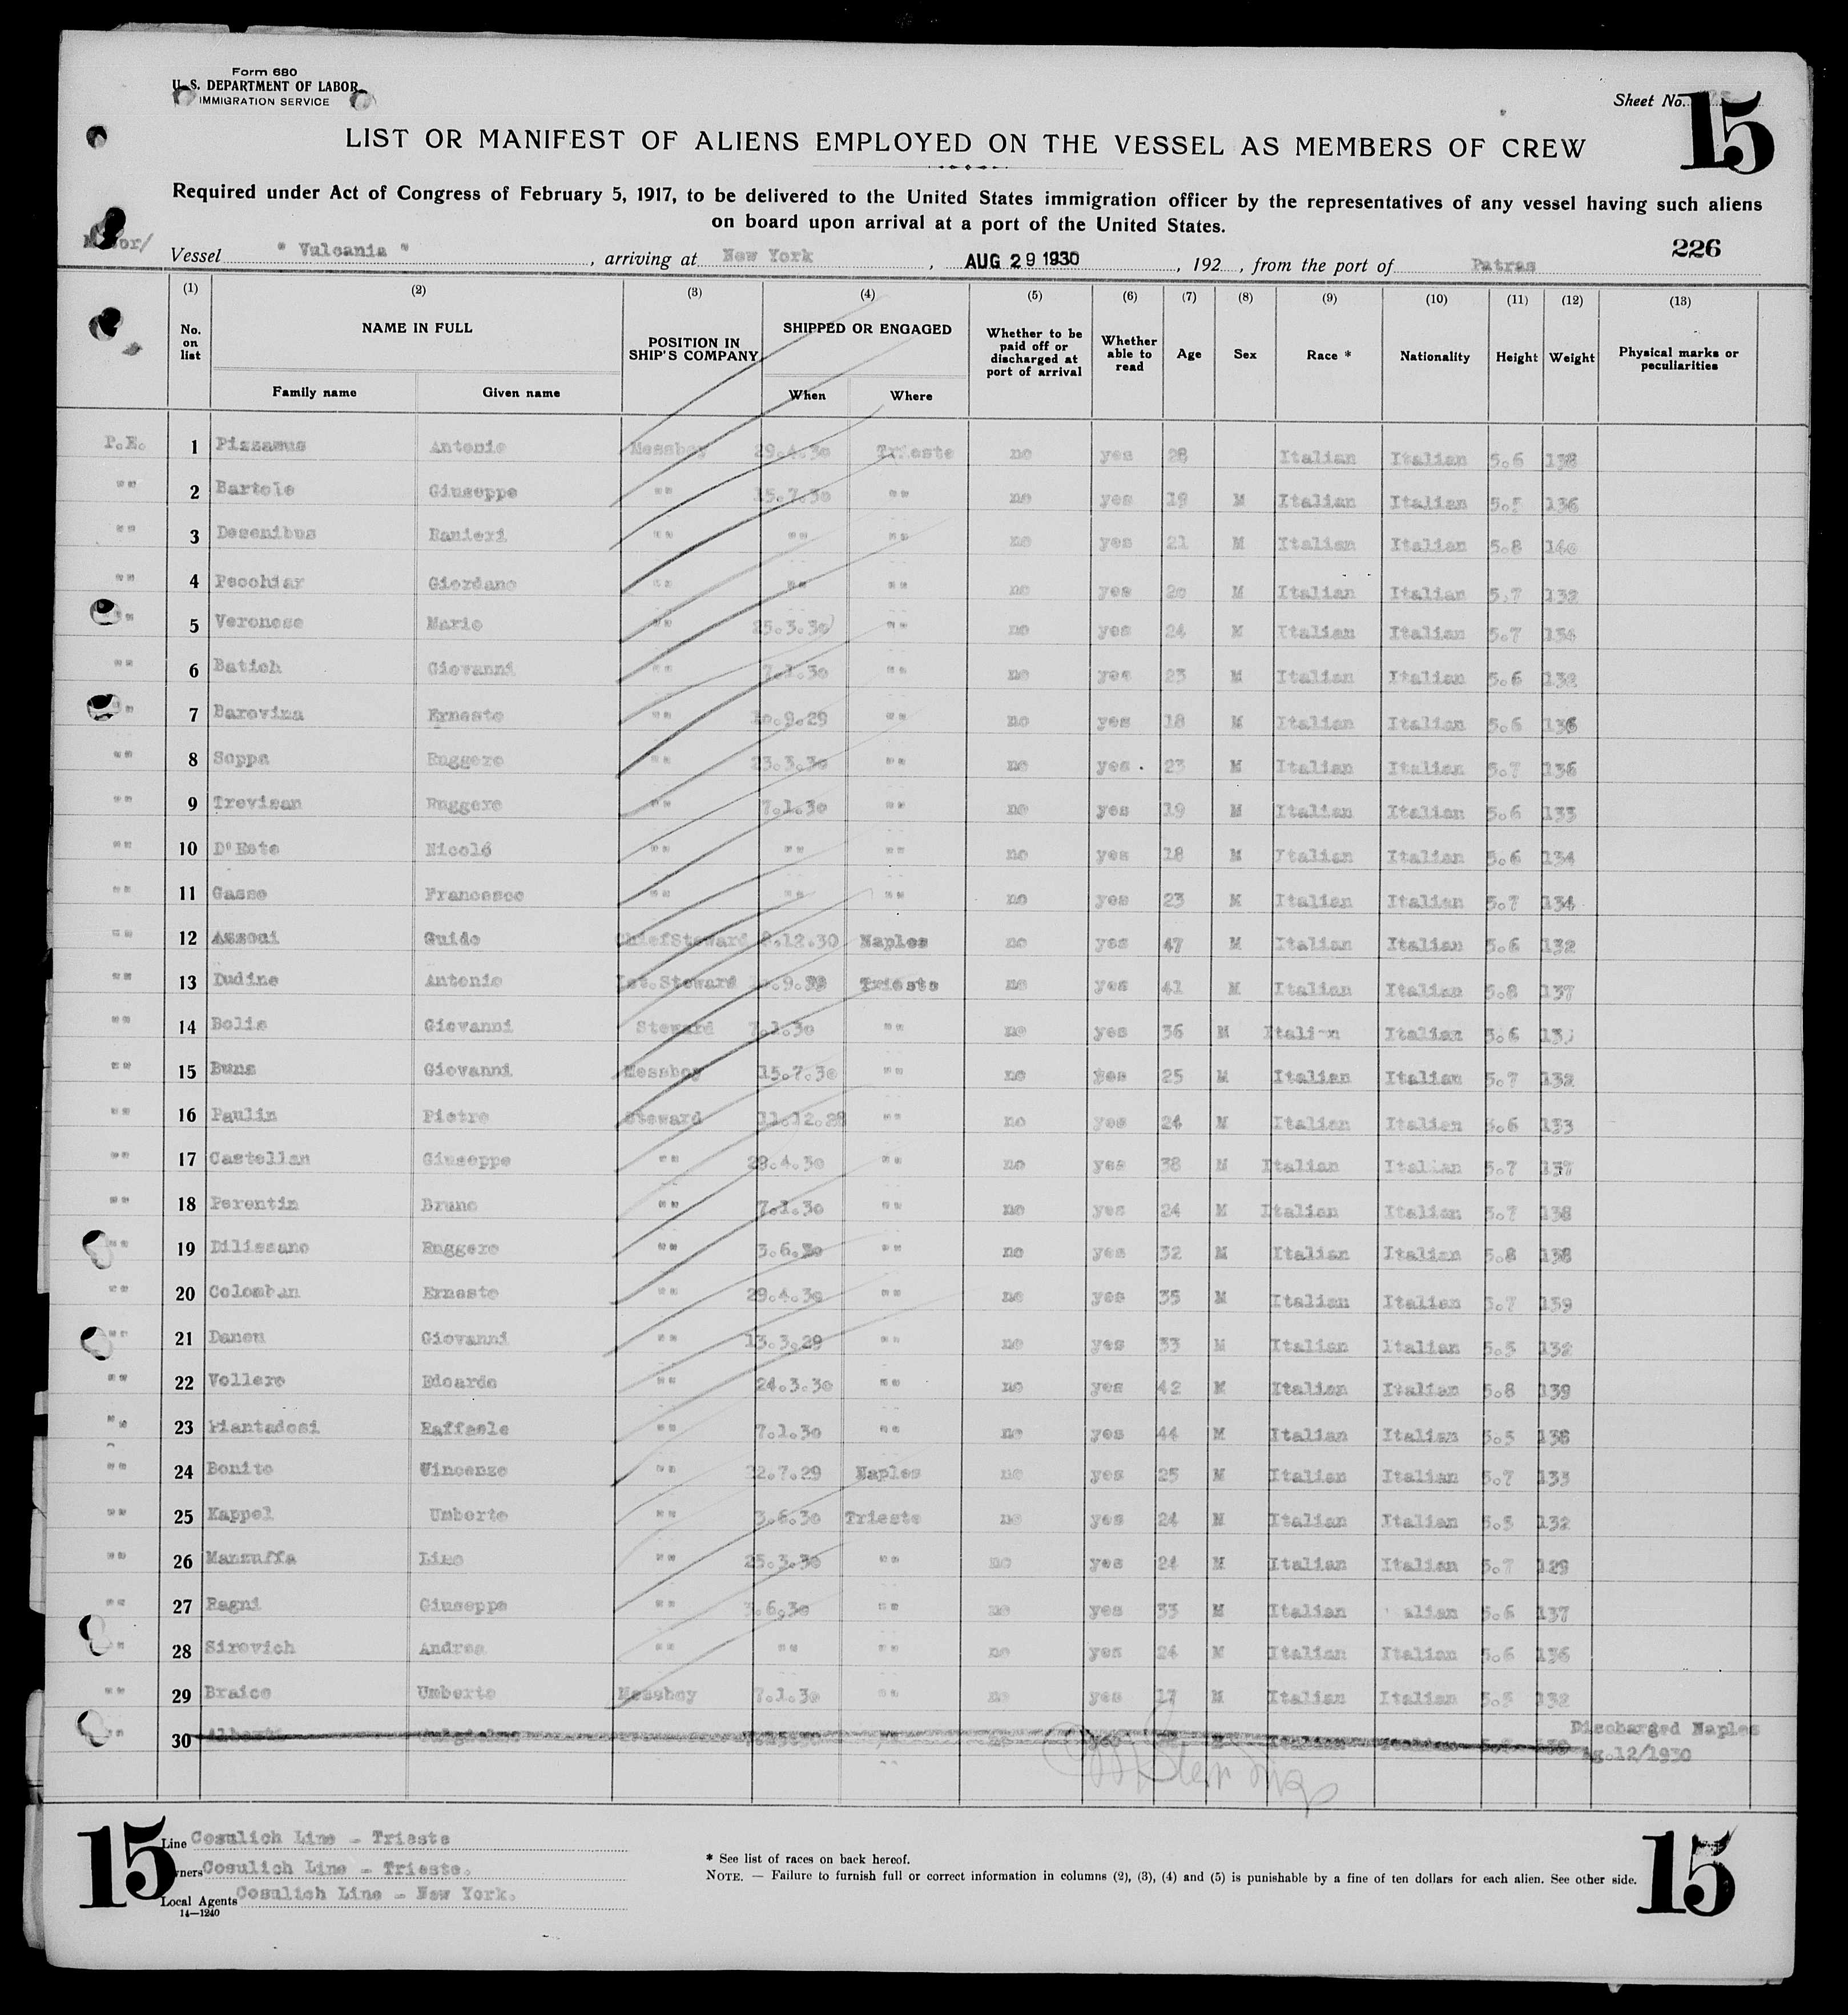 Form 680
U. S. DEPARTMENT OF LABOR
IMMIGRATION SERVICE
Sheet No.
15
LIST OR MANIFEST OF ALIENS EMPLOYED ON THE VESSEL AS MEMBERS OF CREW
Required under Act of Congress of February 5, 1917, to be delivered to the United States immigration officer by the representatives of any vessel having such aliens
on board upon arrival at a port of the United States.
226
Vessel " Vulcania " , arriving at New York , AUG 29 1930 , 192 , from the port of Patras
(1) (2) (3) (4) (5) (6) (7) (8) (9) (10) (11) (12) (13)
No. on list NAME IN FULL Family name Given name POSITION IN SHIP'S COMPANY SHIPPED OR ENGAGED When Where Whether to be paid off or discharged at port of arrival Whether able to read Age Sex Race * Nationality Height Weight Physical marks or peculiarities
P.E. 1 Pizzamus Antonio Messboy 29.4.30 Trieste no yes 28 Italian Italian 5.6 138
"" 2 Bartole Giuseppe "" 15.7.30 "" no yes 19 M Italian Italian 5.5 136
"" 3 Desenibus Ranieri "" "" "" no yes 21 M Italian Italian 5.8 140
"" 4 Pecchiar Giordano "" "" "" no yes 20 M Italian Italian 5.7 132
"" 5 Veronese Mario "" 25.3.30 "" no yes 24 M Italian Italian 5.7 134
"" 6 Batich Giovanni "" 7.1.30 "" no yes 23 M Italian Italian 5.6 132
"" 7 Barovina Ernesto "" 10.9.29 "" no yes 18 M Italian Italian 5.6 136
"" 8 Soppa Ruggero "" 23.3.30 "" no yes 23 M Italian Italian 5.7 136
"" 9 Trevisan Ruggero "" 7.1.30 "" no yes 19 M Italian Italian 5.6 133
"" 10 D'Este Nicoló "" "" "" no yes 18 M Italian Italian 5.6 134
"" 11 Gasso Francesco "" "" "" no yes 23 M Italian Italian 5.7 134
"" 12 Assoni Guido ChiefSteward 8.12.30 Naples no yes 47 M Italian Italian 5.6 132
"" 13 Dudine Antonio 1st.Steward Trieste no yes 41 M Italian Italian 5.8 137
"" 14 Bolis Giovanni Steward 7.1.30 "" no yes 36 M Italian Italian 5.6
"" 15 Buns Giovanni Messboy 15.7.30 "" no yes 25 M Italian Italian 5.7 132
"" 16 Paulin Pietro Steward 11.12.28 "" no yes 24 M Italian Italian 5.6 133
"" 17 Castellan Giuseppe "" 29.4.30 "" no yes 38 M Italian Italian 5.7 137
"" 18 Perentin Bruno "" 7.1.30 "" no yes 24 M Italian Italian 5.7 138
"" 19 Dilissano Ruggero "" 3.6.30 "" no yes 32 M Italian Italian 5.8 138
"" 20 Colomban Ernesto "" 29.4.30 "" no yes 35 M Italian Italian 5.7 139
"" 21 Daneu Giovanni "" 13.3.29 "" no yes 33 M Italian Italian 5.5 132
"" 22 Vollero Edoardo "" 24.3.30 "" no yes 42 M Italian Italian 5.8 139
"" 23 Piantadosi Raffaele "" 7.1.30 "" no yes 44 M Italian Italian 5.5 138
"" 24 Bonito Vincenzo "" 22.7.29 Naples no yes 25 M Italian Italian 5.7 133
"" 25 Kappel Umberto "" 3.6.30 Trieste no yes 24 M Italian Italian 5.5 132
"" 26 Manzuffa Lino "" 25.3.30 "" no yes 24 M Italian Italian 5.7 129
"" 27 Ragni Giuseppe "" 3.6.30 "" no yes 33 M Italian Italian 5.6 137
"" 28 Sirovich Andrea "" "" "" no yes 24 M Italian Italian 5.6 136
"" 29 Braico Umberto Messboy 7.1.30 "" no yes 17 M Italian Italian 5.5 132
"" 30 Alberti yes Italian Italian Discharged Naples
Ag.12/1930
15
Line Cosulich Line - Trieste
Owners Cosulich Line - Trieste.
Local Agents Cosulich Line - New York.
14—1240
* See list of races on back hereof.
NOTE. — Failure to furnish full or correct information in columns (2), (3), (4) and (5) is punishable by a fine of ten dollars for each alien. See other side.
15